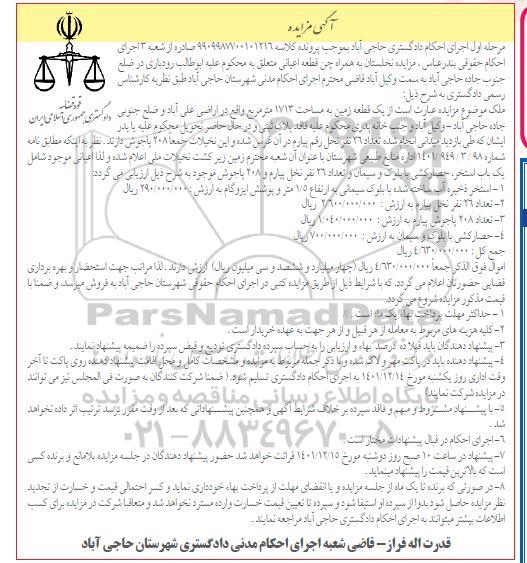 آگهی مزایده
قوه قضائیه
دادگستری جمهوری اسلامی ایران
مرحله اول اجرای احکام دادگستری حاجی آباد بموجب پرونده کلاسه ۹۹۰۹۹۸۷۷۰۰۱۰۱۲۱۶ صادره از شعبه ۳ اجرای
احکام حقوقی بندرعباس ، مزایده نخلستان به همراه چن قطعه اعیانی متعلق به محکوم علیه ابوطالب رودباری در ضلع
جنوب جاده حاجی آباد به سمت وکیل آباد قاضی محترم اجرای احکام مدنی شهرستان حاجی آباد طبق نظریه کارشناس
رسمی دادگستری به شرح ذیل:
ملک موضوع مزایده عبارت است از یک قطعه زمین به مساحت ۱۷۱۳ متر مربع واقع در اراضی علی آباد و ضلع جنوبی
جاده حاجی آباد - وکیل آباد و جنب خانه پدری محکوم علیه فاقد پلاک ثبتی و در حال حاضر تحویل محکوم علیه یا پدر
ایشان که طی بازدید میدانی انجام شده تعداد ۲۶ نفر نخل رقم پیارم در آن غرس شده و این نخیلات جمعا ۲۰۸ پاجوش دارند . نظر به اینکه مطابق نامه
شماره ۹۸ / ۳ / ۹۴۹ / ۱۴۰۱ اداره منابع طبیعی شهرستان با عنوان آن شعبه محترم زمین زیر کشت نخیلات ملی اعلام شده و لذا اعیانی موجود شامل
یک باب استخر، حصارکشی با بلوک و سیمان و تعداد ۲۶ نفر نخل پیارم و ۲۰۸ پاجوش موجود به شرح ذیل ارزیابی می گردد:
۱- استخر ذخیره آب ساخته شده با بلوک سیمانی به ارتفاع ۱/۵ متر و پوشش ایزوگام به ارزش : ۲۹۰/۰۰۰/۰۰۰ ریال
۲- تعداد ۲۶ نفر نخل پیارم به ارزش : ۲/۶۰۰/۰۰۰/۰۰۰ ریال
۳- تعداد ۲۰۸ پاجوش پیارم به ارزش : ۱/۰۴۰/۰۰۰/۰۰۰ ریال
۴- حصارکشی با بلوک و سیمان به ارزش : ۷۰۰/۰۰۰/۰۰۰ ریال
جمع کل : ۴/۶۳۰/۰۰۰/۰۰۰ ریال
اموال فوق الذکر جمعا ۴/۶۳۰/۰۰۰/۰۰۰ ریال (چهار میلیارد و ششصد و سی میلیون ریال) ارزش دارند . لذا مراتب جهت استحضار و بهره برداری
قضایی حضورتان اعلام می گردد. که با شرایط ذیل از طریق مزایده کتبی در اجرای احکام حقوقی شهرستان حاجی آباد به فروش میرسد. و ضمنا با
قیمت مذکور مزایده شروع می گردد.
۱- حداکثر مهلت پرداخت بهاء یک ماه است . //
۲- کلیه هزینه های مربوط به معامله از هر قبیل و از هر جهت به عهده خریدار است .
۳- پیشنهاد دهندگان باید فی‌لاده درصد بهاء و ارزیابی را به حساب سپرده دادگستری تودیع و قبض سپرده را ضمیمه پیشنهاد نمایند .
۴- پیشنهاد دهنده باید در پاکت مهر و لاک شده و با ذکر جمله مربوط به مزایده و مشخصات کامل و محل اقامت پیشنهاد دهنده روی پاکت تا آخر
وقت اداری روز یکشنبه مورخ ۱۴۰۱/۱۲/۱۴ به اجرای احکام دادگستری تسلیم شود. ( ضمنا شرکت کنندگان به صورت فی المجلس نیز می توانند
در مزایده شرکت نمایند)
۵- با پیشنهاد مشروط و مبهم و فاقد سپرده بر خلاف شرایط آگهی و همچنین پیشنهاداتی که بعد از وقت مقرر برسد ترتیب اثر داده نخواهد
شد .
۶- اجرای احکام در قبال پیشنهادات مختار است .
۷- پیشنهاد در ساعت ۱۰ صبح روز دوشنبه مورخ ۱۴۰۱/۱۲/۱۵ قرائت خواهد شد حضور پیشنهاد دهندگان در جلسه مزایده بلامانع و برنده کسی
است که بالاترین قیمت را پیشنهاد مینماید .
۸- در صورتی که برنده تا یک ماه از جلسه مزایده و با انقضای مهلت از پرداخت بهاء خودداری نماید و کسر احتمالی قیمت و خسارت از تجدید
نظر مزایده حاصل شود بدوا از سپرده او استیفا شود و سپرده تا تعیین قیمت خسارت وارده مسترد نخواهد شد و متعاقبا شرکت در مزایده برای کسب
اطلاعات بیشتر میتوانند به اجرای احکام دادگستری حاجی آباد مراجعه نمایند .
قدرت اله فراز – قاضی شعبه اجرای احکام مدنی دادگستری شهرستان حاجی آباد
ParsNamadData
پایگاه اطلاع رسانی مناقصه و مزایده
۰۲۱-۸۸۳۴۹۶۷۰-۵